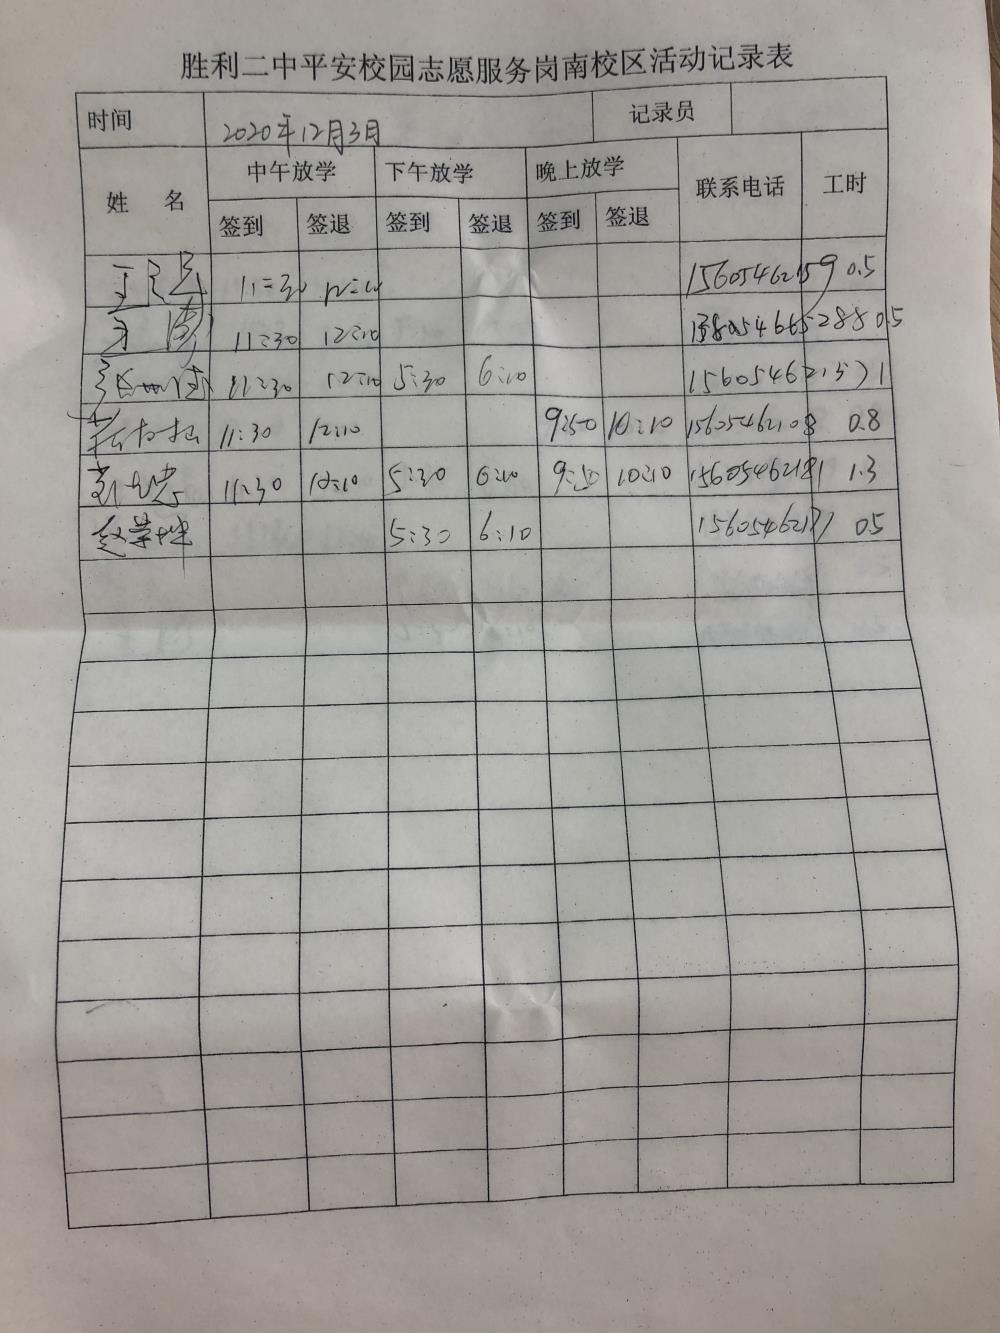 胜利二中平安校园志愿服务岗南校区活动记录表
时间 2020年12月3日 记录员
姓 名 中午放学 下午放学 晚上放学 联系电话 工时
签到 签退 签到 签退 签到 签退
11:30 0.5
11:30 12:10 0.5
11:30 12:10 5:30 6:10 1
11:30 12:10 9:50 10:10 15605462108 0.8
11:30 12:10 5:30 6:10 9:50 10:10 15605462181 1.3
赵荣坤 5:30 6:10 0.5